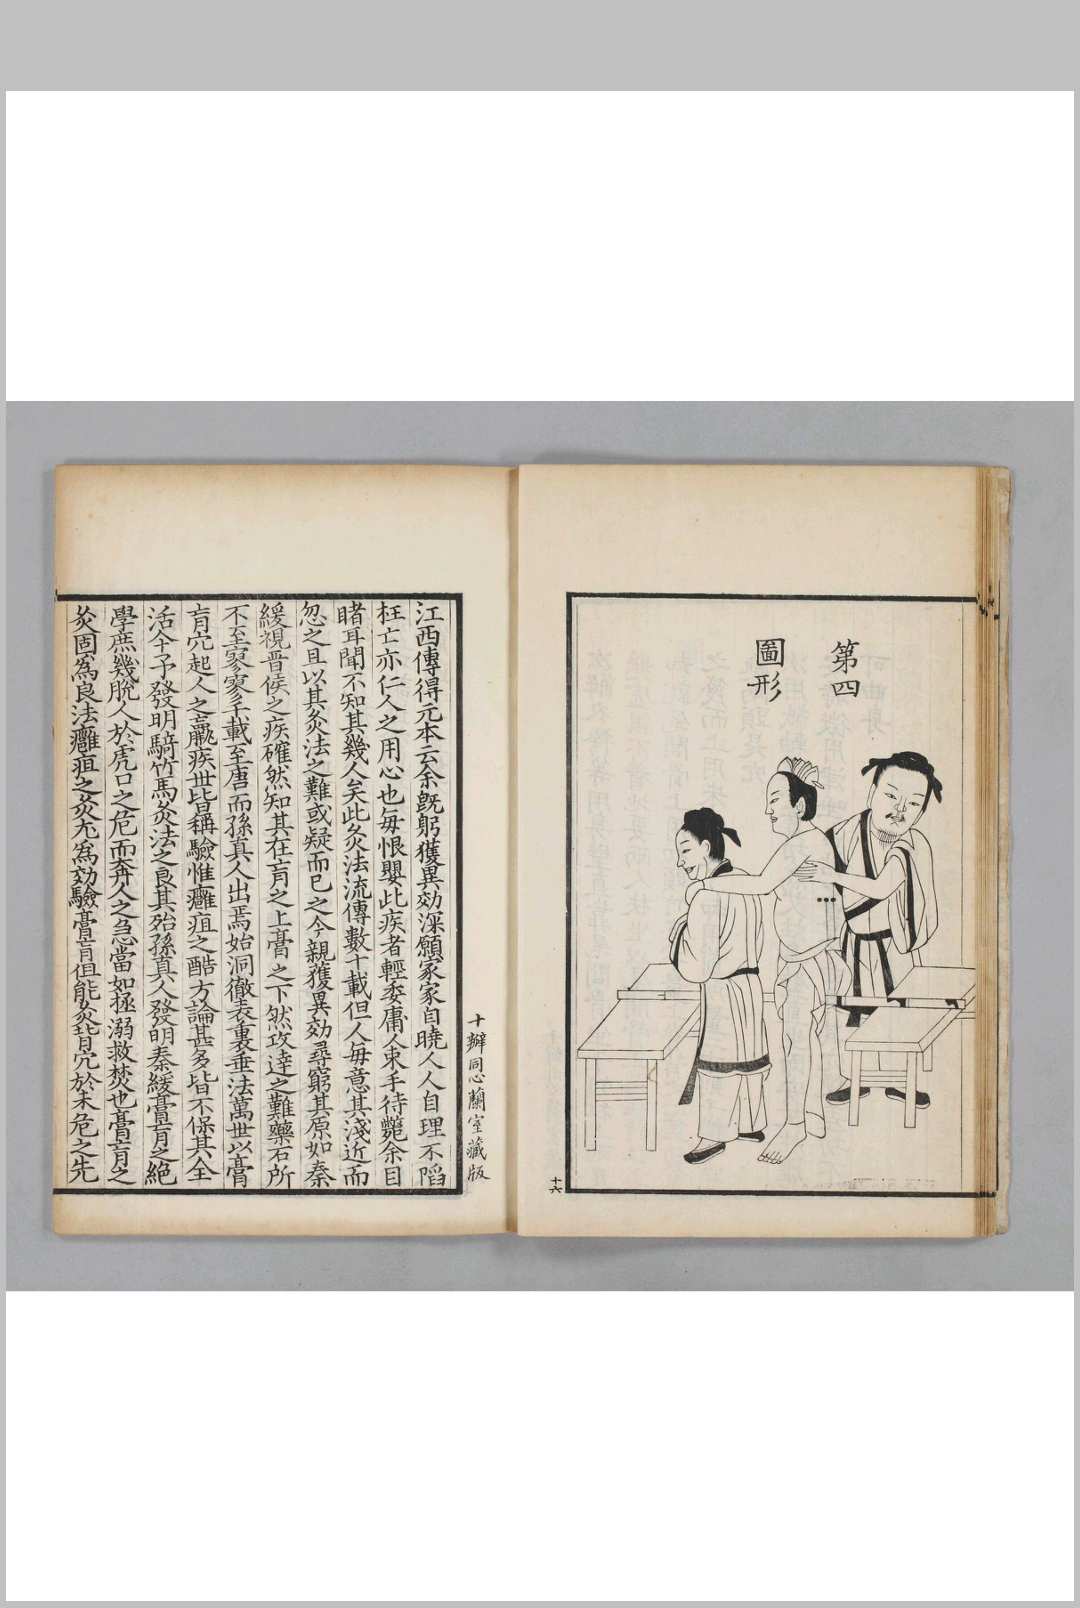 第四
圖形
十六
十瓣同心蘭室藏版
江西傳得元本云余旣躬獲異効深願家家自曉人人自理不陷
枉亡亦仁人之用心也每恨嬰此疾者輕委庸人束手待斃余目
睹耳聞不知其幾人矣此灸法流傳數十載但人每意其淺近而
忽之且以其灸法之難或疑而已之今親獲異効尋窮其原如秦
緩視晉侯之疾確然知其在肓之上膏之下然攻達之難藥石所
不至寥寥千載至唐而孫眞人出焉始洞徹表裏垂法萬世以膏
肓穴起人之羸疾世皆稱驗惟癰疽之酷方論甚多皆不保其全
活今予發明騎竹馬灸法之良其殆孫眞人發明秦緩膏肓之絕
學庶幾脫人於虎口之危而奔人之急當如拯溺救焚也膏肓之
灸固爲良法癰疽之灸尤爲効驗膏肓但能灸背穴於未危之先